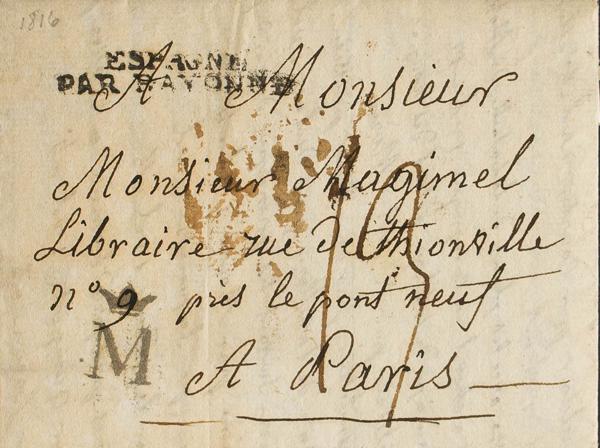 1816
ESPAGNE
PAR BAYONNE
A Monsieur
Monsieur Magimel
Libraire rue de thionville
n° 9 près le pont neuf
M
A Paris